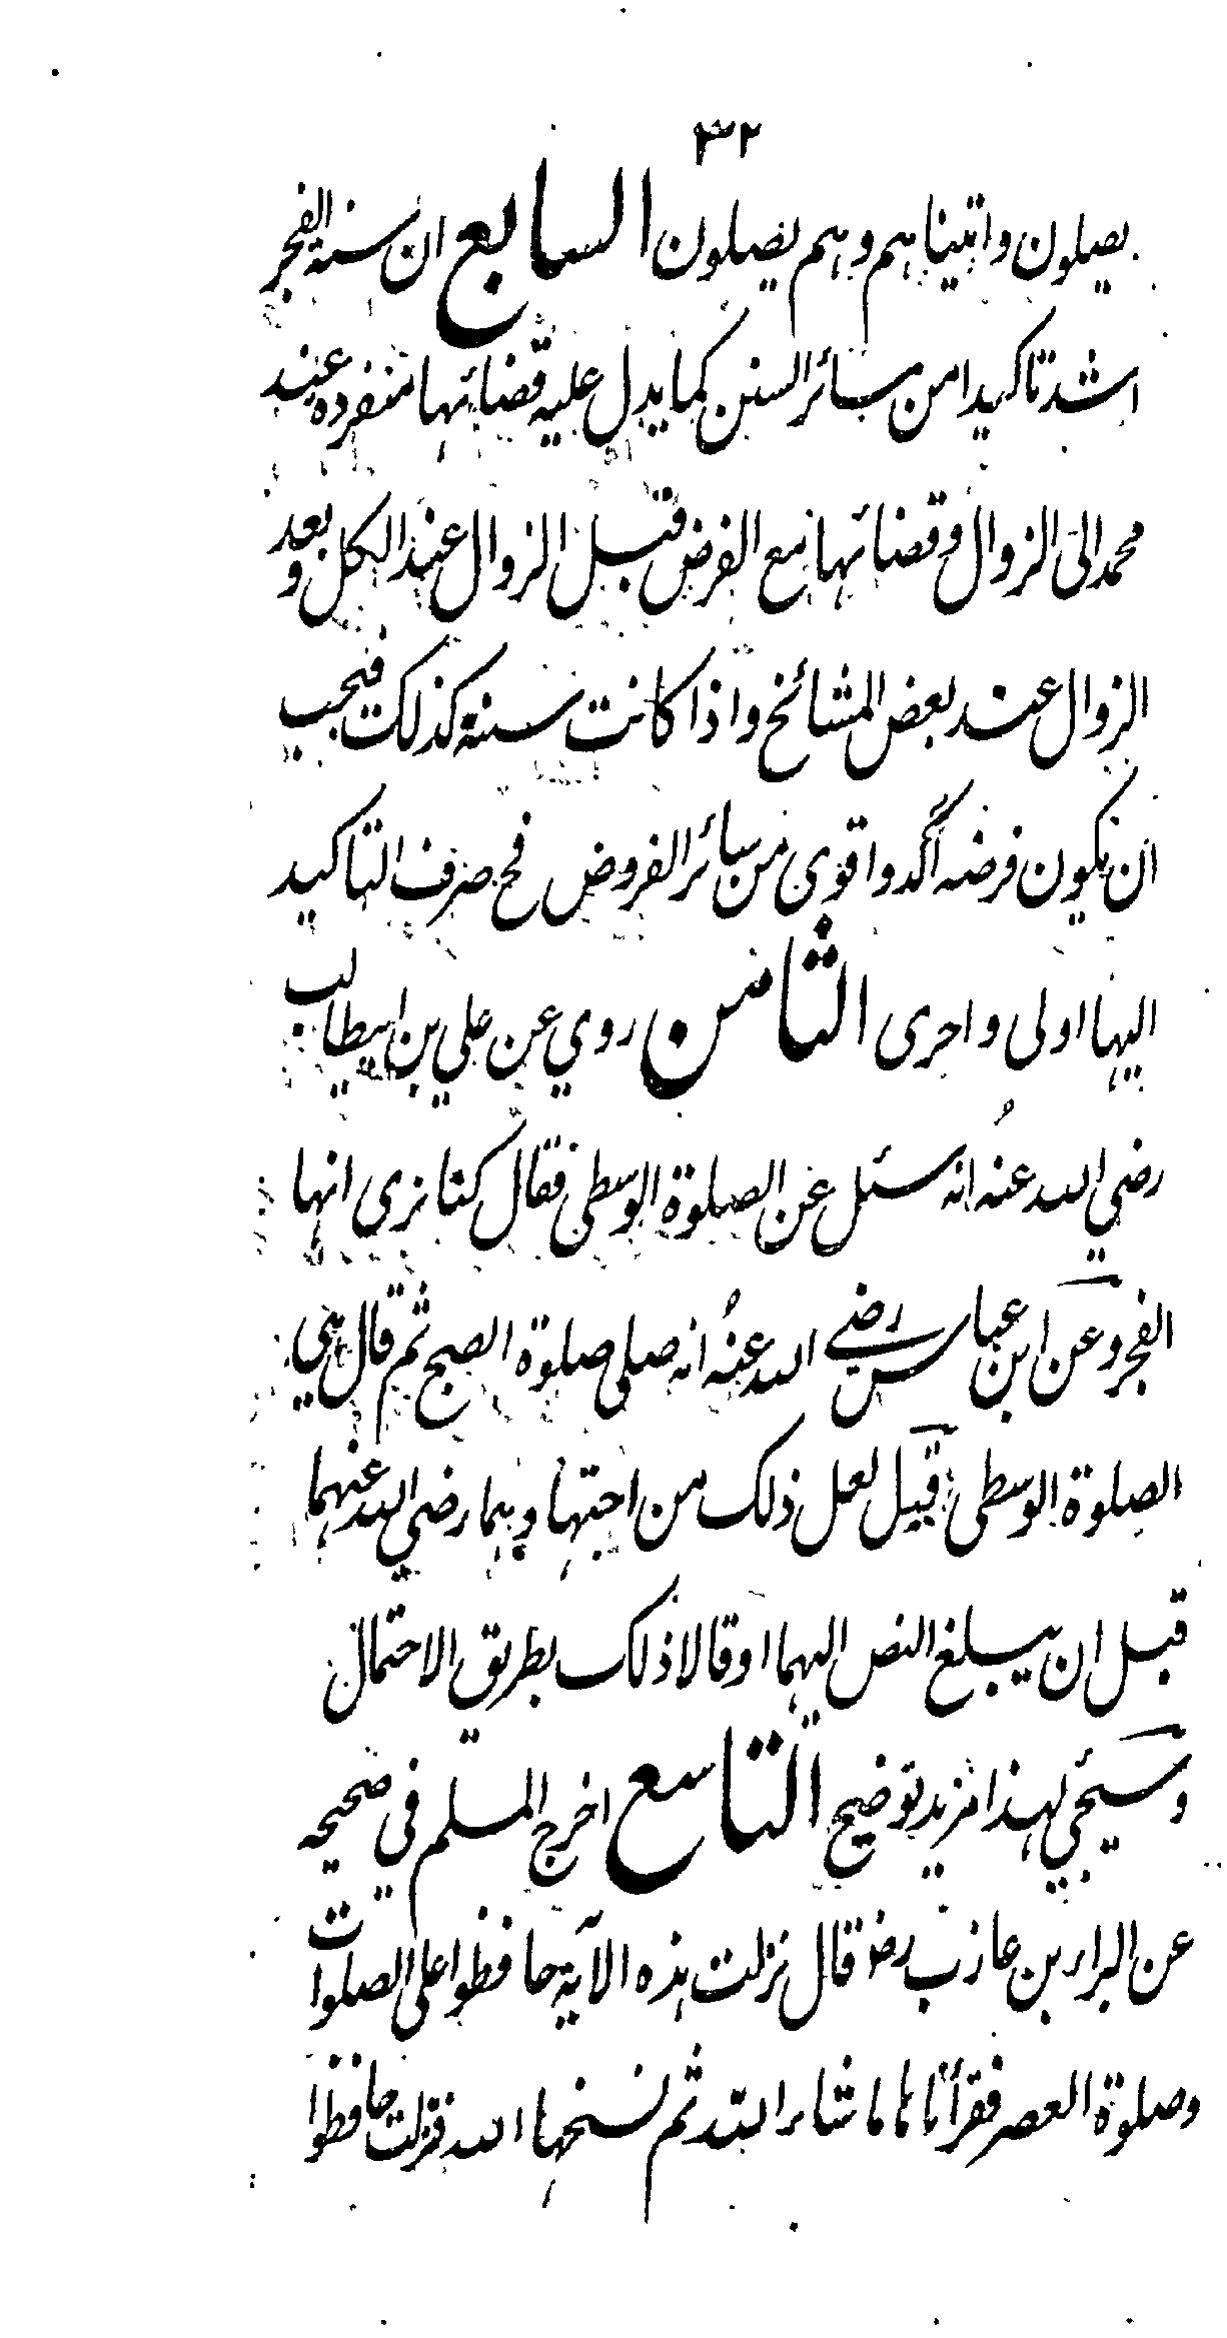 ٣٢
يصلون واتيناهم وهم يصلون السابع ان سنة الفجر
اشد تاكيدا من سائر السنن كما يدل عليه قضائها منفرده عند
محمد الى الزوال وقضائها مع الفرض قبل الزوال عند الكل وبعد
الزوال عند بعض المشائخ واذا كانت سنة كذلك فيجب
ان يكون فرضه آكد واقوى من سائر الفروض فح صرف التاكيد
اليها اولى واحرى الثامن روي عن علي بن ابيطالب
رضي الله عنه انه سئل عن الصلوة الوسطى فقال كنا نرى انها
الفجر وعن ابن عباس رضي الله عنه انه صلى صلوة الصبح ثم قال هي
الصلوة الوسطى قيل لعل ذلك من اجتهادهما رضي الله عنهما
قبل ان يبلغ النص اليهما او قالا ذلك بطريق الاحتمال
وسيجي لهذا مزيد توضيح التاسع اخرج المسلم في صحيحه
عن البراء بن عازب رض قال نزلت هذه الآية حافظوا على الصلوات
وصلوة العصر فقرأناها ما شاء الله ثم نسخها الله فنزلت حافظوا